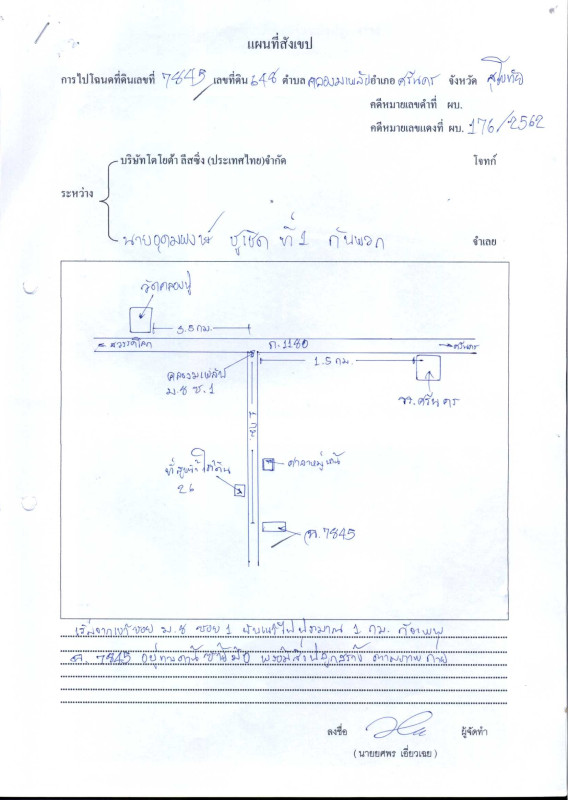 แผนที่สังเขป
การไปโฉนดที่ดินเลขที่ 7845 เลขที่ดิน 648 ตำบล คลองมะพลับ อำเภอ ศรีนคร จังหวัด สุโขทัย
คดีหมายเลขดำที่ ผบ.
คดีหมายเลขแดงที่ ผบ. 176/2562
บริษัทโตโยต้า ลีสซิ่ง (ประเทศไทย)จำกัด โจทก์
ระหว่าง
นายอุดมพงษ์ ชูเชิด ที่ 1 กับพวก จำเลย
วัดคลองปู
3.5 กม.
สวรรคโลก ถ.1180 ศรีนคร
1.5 กม.
คลองมะพลับ
ม.8 ซ.1
รร.ศรีนคร
1 กม.
ศาลาหมู่บ้าน
ที่สูบน้ำใต้ดิน
26
ฉ.7845
เริ่มจากเข้าซอย ม.8 ซอย 1 ประมาณ 1 กม.
ฉ. 7845 อยู่ทางด้านซ้ายมือ พร้อมสิ่งปลูกสร้าง ตามภาพถ่าย
ลงชื่อ ผู้จัดทำ
(นายยศพร เอี่ยวเฉย)